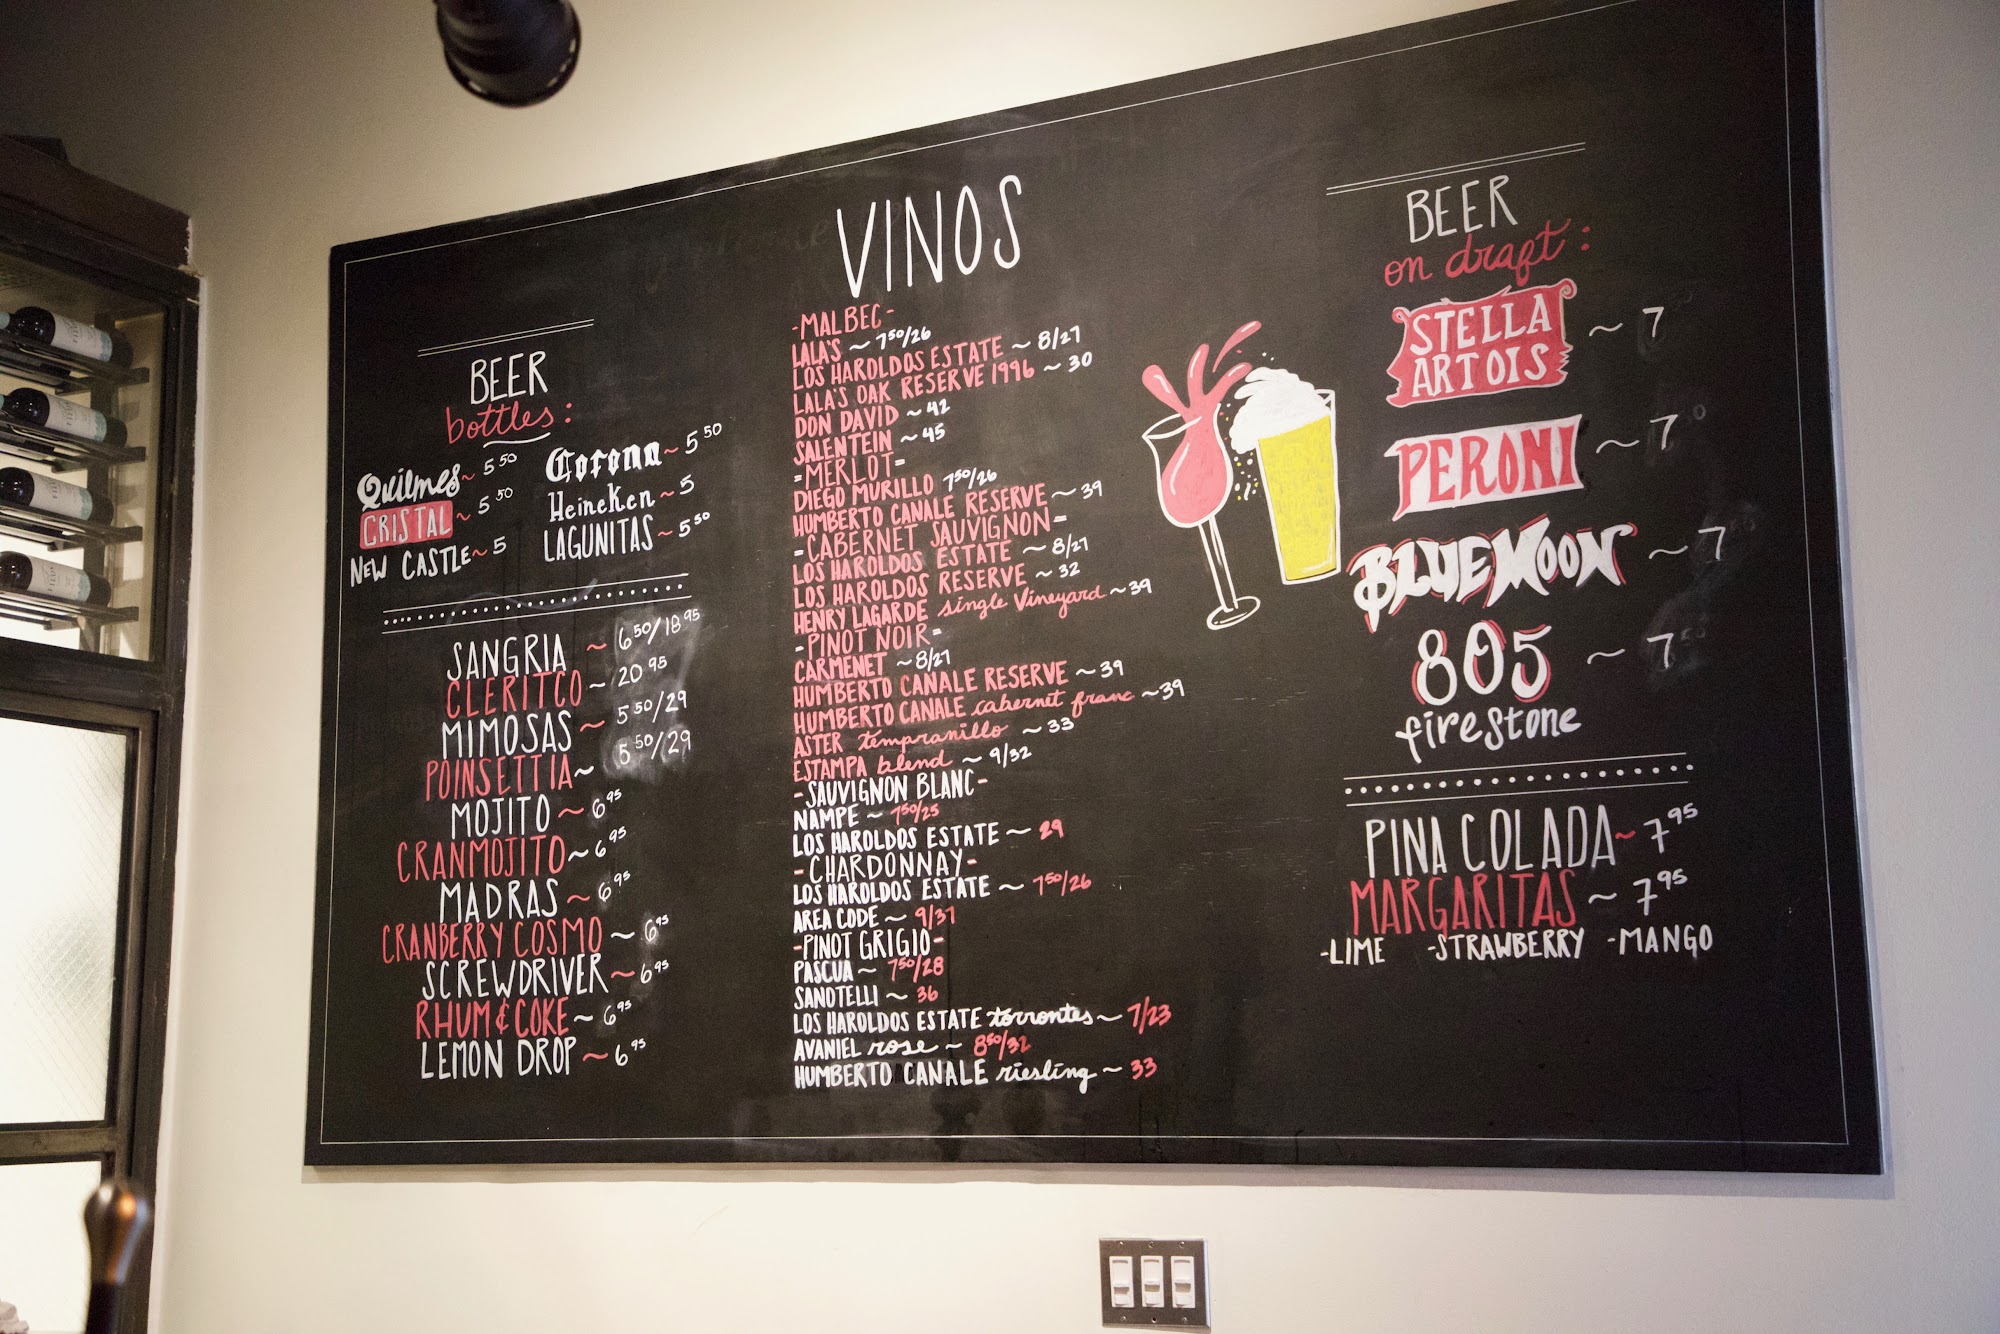 BEER
bottles:
Quilmes ~ 5 50
CRISTAL ~ 5 50
NEW CASTLE ~ 5
Corona ~ 5 50
Heineken ~ 5
LAGUNITAS ~ 5 50
SANGRIA ~ 6 50/18 95
CLERITCO ~ 20 95
MIMOSAS ~ 5 50/29
POINSETTIA ~ 5 50/29
MOJITO ~ 6 95
CRANMOJITO ~ 6 95
MADRAS ~ 6 95
CRANBERRY COSMO ~ 6 95
SCREWDRIVER ~ 6 95
RHUM & COKE ~ 6 95
LEMON DROP ~ 6 95
VINOS
-MALBEC-
LALA'S ~ 7 50/26
LOS HAROLDOS ESTATE ~ 8/27
LALA'S OAK RESERVE 1996 ~ 30
DON DAVID ~ 42
SALENTEIN ~ 45
=MERLOT=
DIEGO MURILLO 7 50/26
HUMBERTO CANALE RESERVE ~ 39
=CABERNET SAUVIGNON=
LOS HAROLDOS ESTATE ~ 8/27
LOS HAROLDOS RESERVE ~ 32
HENRY LAGARDE single Vineyard ~ 39
-PINOT NOIR=
CARMENET ~ 8/27
HUMBERTO CANALE RESERVE ~ 39
HUMBERTO CANALE cabernet franc ~ 39
ASTER tempranillo ~ 33
ESTAMPA blend ~ 9/32
-SAUVIGNON BLANC-
NAMPE ~ 7 50/25
LOS HAROLDOS ESTATE ~ 29
-CHARDONNAY-
LOS HAROLDOS ESTATE ~ 7 50/26
AREA CODE ~ 9/37
-PINOT GRIGIO-
PASCUA ~ 7 50/28
SANOTELLI ~ 36
LOS HAROLDOS ESTATE torrontes ~ 7/23
AVANIEL rose ~ 8 50/32
HUMBERTO CANALE riesling ~ 33
BEER
on draft:
STELLA
ARTOIS ~ 7
PERONI ~ 7
BLUE MOON ~ 7
805 ~ 7
firestone
PINA COLADA ~ 7 95
MARGARITAS ~ 7 95
-LIME -STRAWBERRY -MANGO